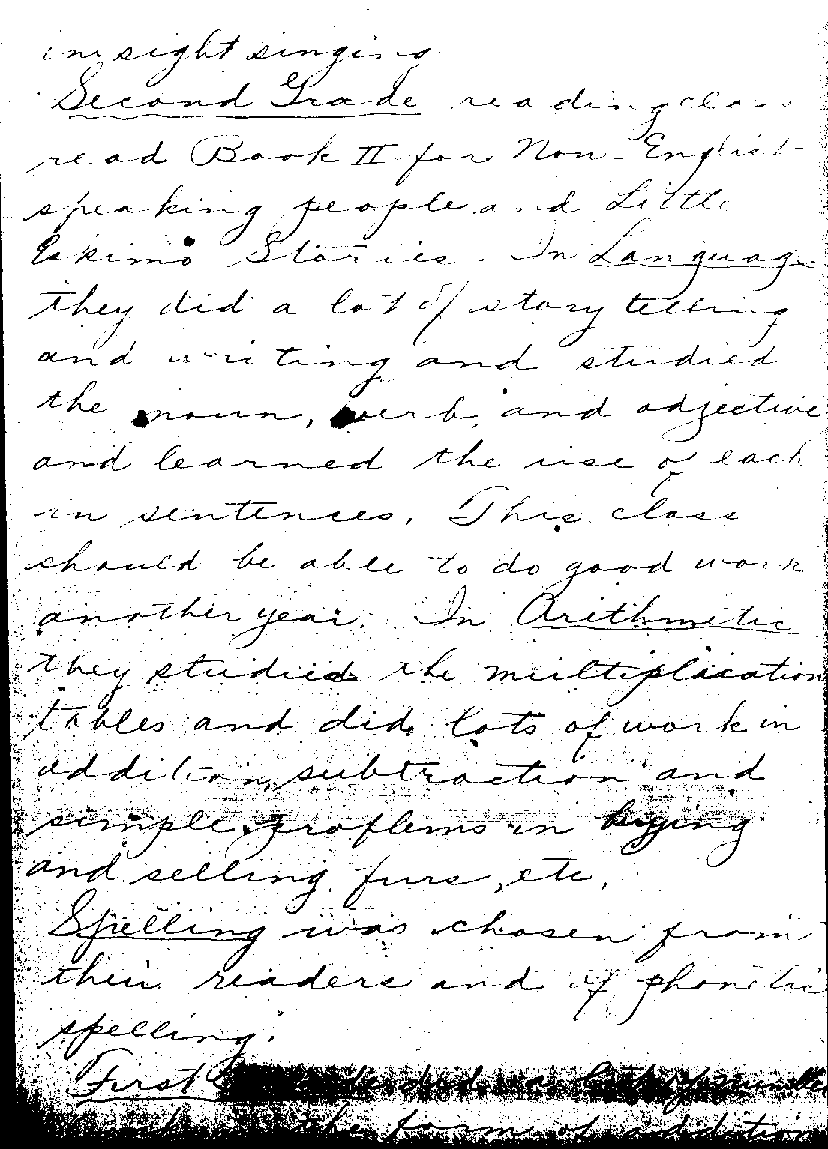 in sight singing
Second Grade reading class
read Book II for Non-English-
speaking people and Little
Eskimo Stories. In Language
they did a lot of story telling
and writing and studied
the noun, verb, and adjective
and learned the use of each
in sentences. This class
should be able to do good work
another year. In Arithmetic
they studied the multiplication
tables and did lots of work in
addition, subtraction and
simple problems in buying
and selling furs, etc.
Spelling was chosen from
their readers and of phonetic
spelling.
First did a lot of number
work in the form of addition